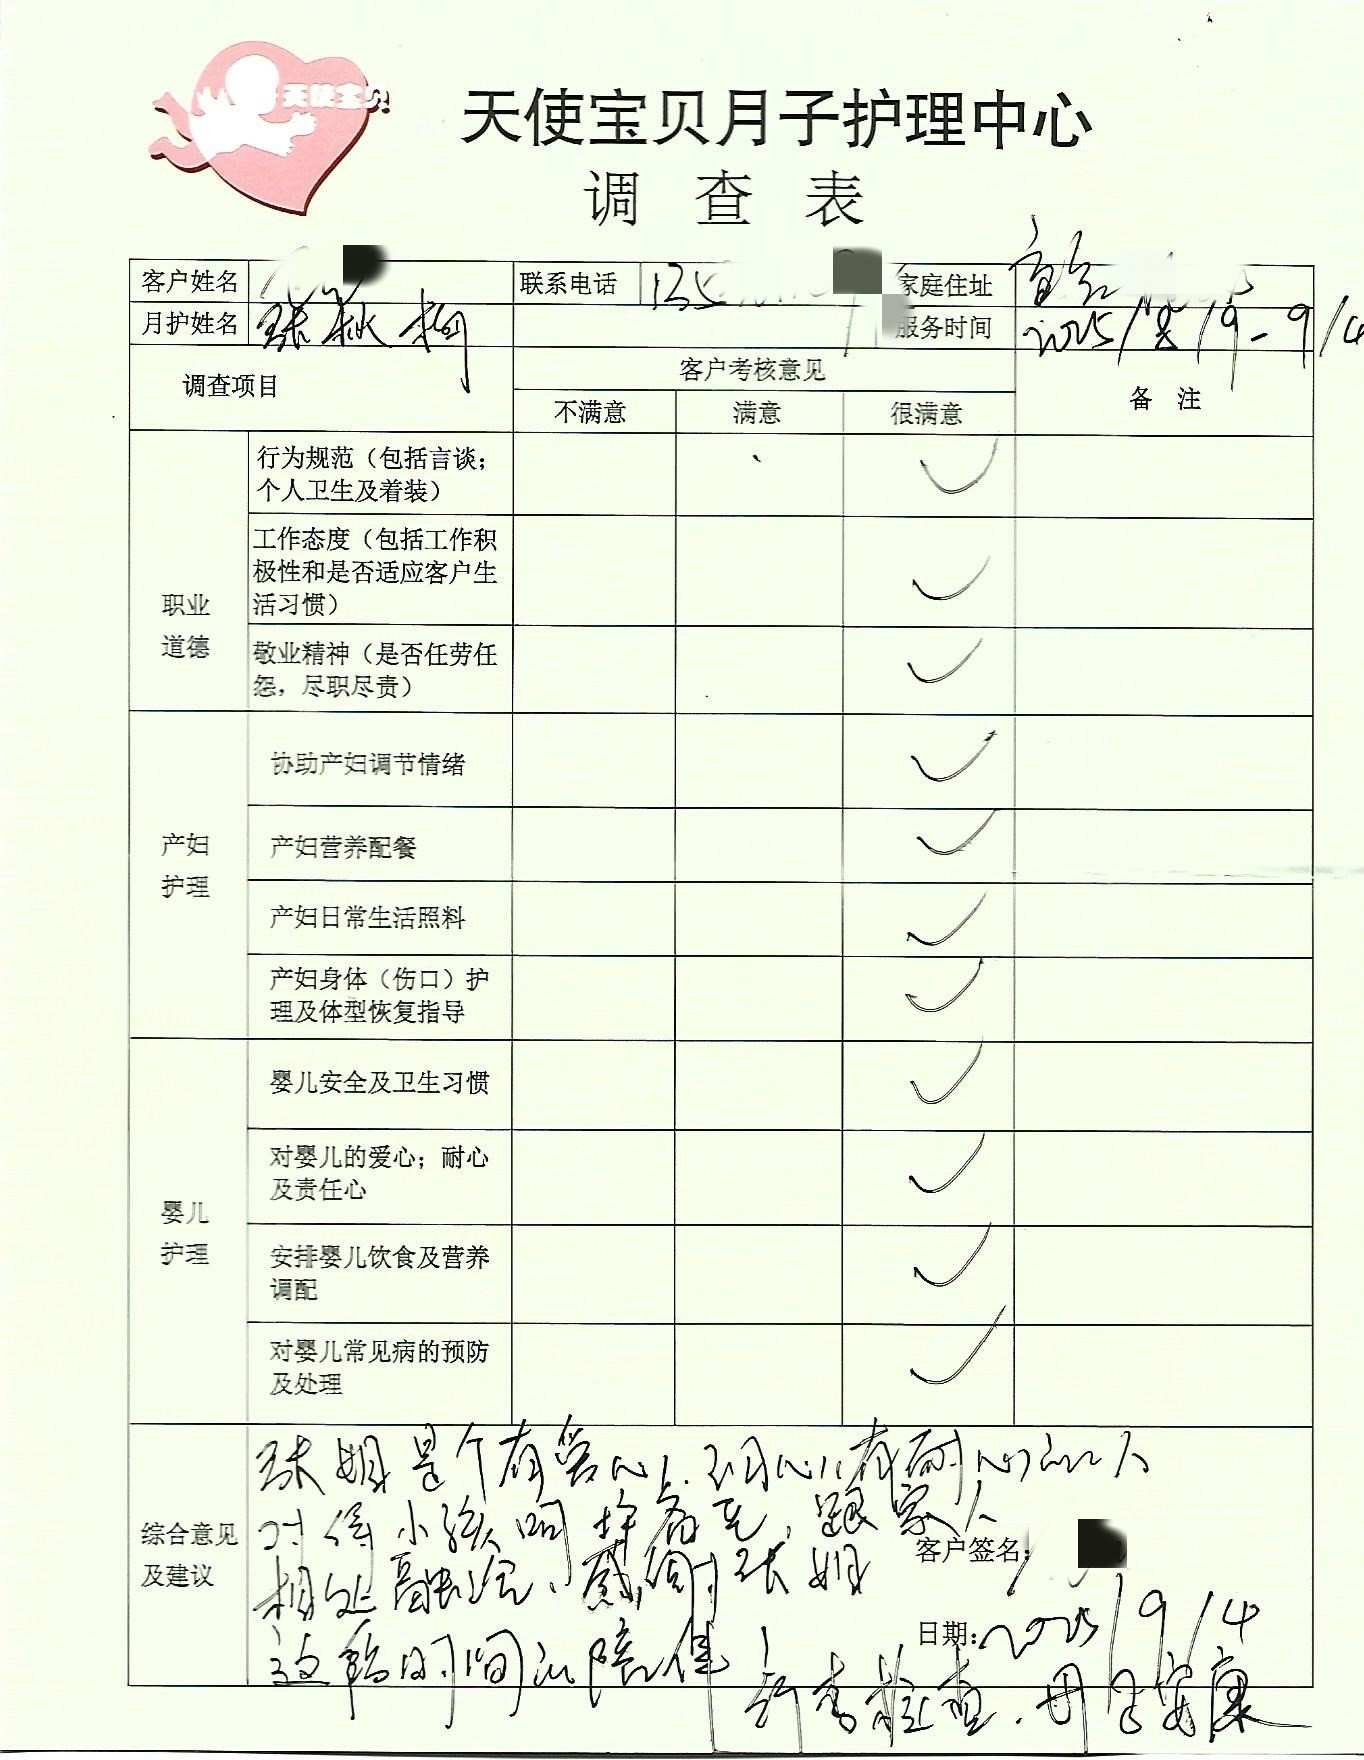 天使宝贝
天使宝贝月子护理中心
调 查 表
客户姓名 联系电话 135 家庭住址
月护姓名 张秋梅 服务时间 2025/8/9-9/4
调查项目 客户考核意见 备 注
不满意 满意 很满意
职业
道德
行为规范（包括言谈；
个人卫生及着装） ✓
工作态度（包括工作积
极性和是否适应客户生
活习惯） ✓
敬业精神（是否任劳任
怨，尽职尽责） ✓
产妇
护理
协助产妇调节情绪 ✓
产妇营养配餐 ✓
产妇日常生活照料 ✓
产妇身体（伤口）护
理及体型恢复指导 ✓
婴儿
护理
婴儿安全及卫生习惯 ✓
对婴儿的爱心；耐心
及责任心 ✓
安排婴儿饮食及营养
调配 ✓
对婴儿常见病的预防
及处理 ✓
综合意见
及建议
张姐是个有爱心、细心、有耐心的人
对待小孩 ，跟家人
相处融洽、感谢张姐
这段时间的陪伴
客户签名：
日期：2025/9/4
安康